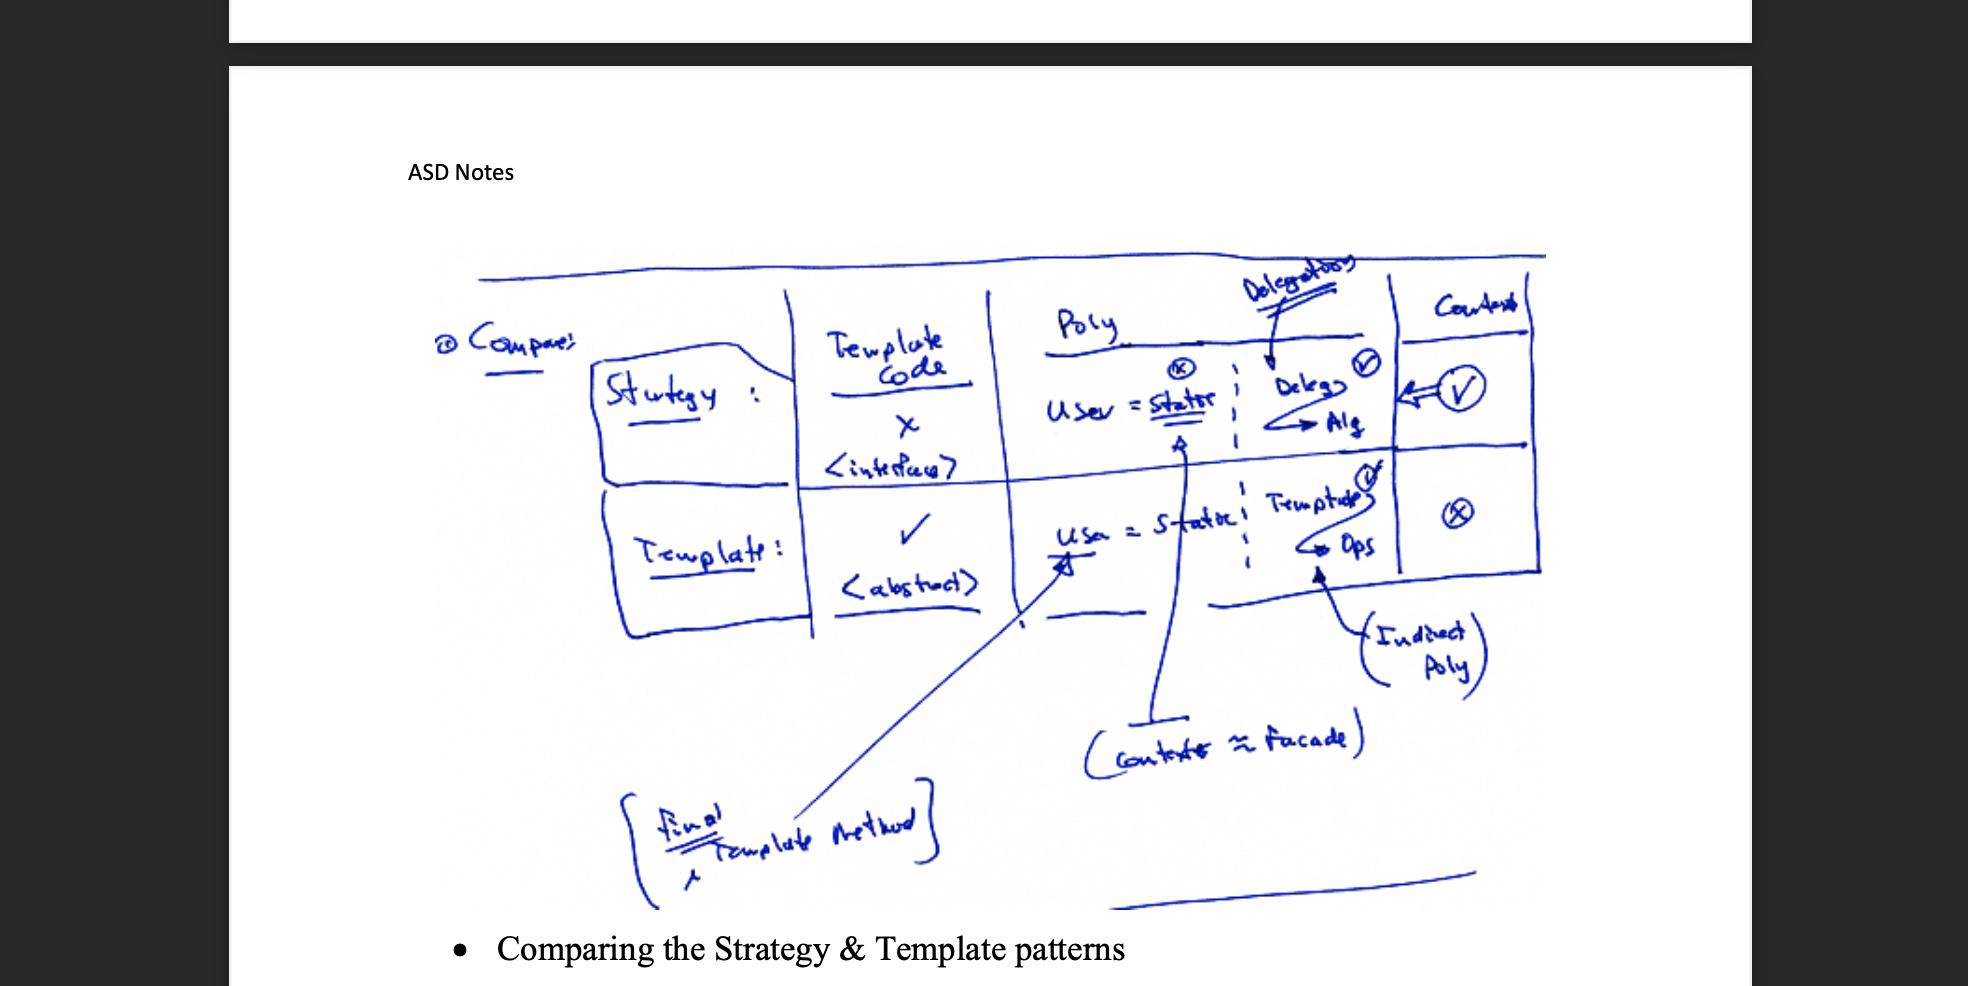 ASD Notes
① Compare:
Template
Code
Poly
Delegation
Context
Strategy :
x
<interface>
User = Static
Deleg
Alg
Template :
✓
<abstract>
User = Static
Template
Ops
(Indirect
Poly)
(Context ≈ Facade)
[final
Template Method]
• Comparing the Strategy & Template patterns